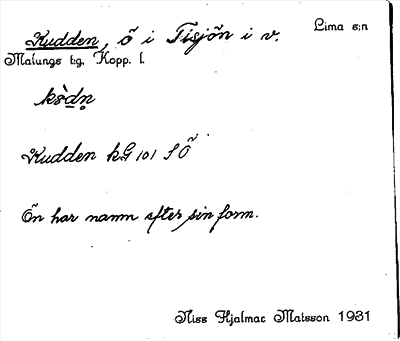 Kudden, ö i Tisjön i v. Lima s:n
Malungs t:g, Kopp. l.
Kudden kG 101 SÖ
Ön har namn efter sin form.
Niss Hjalmar Matsson 1931